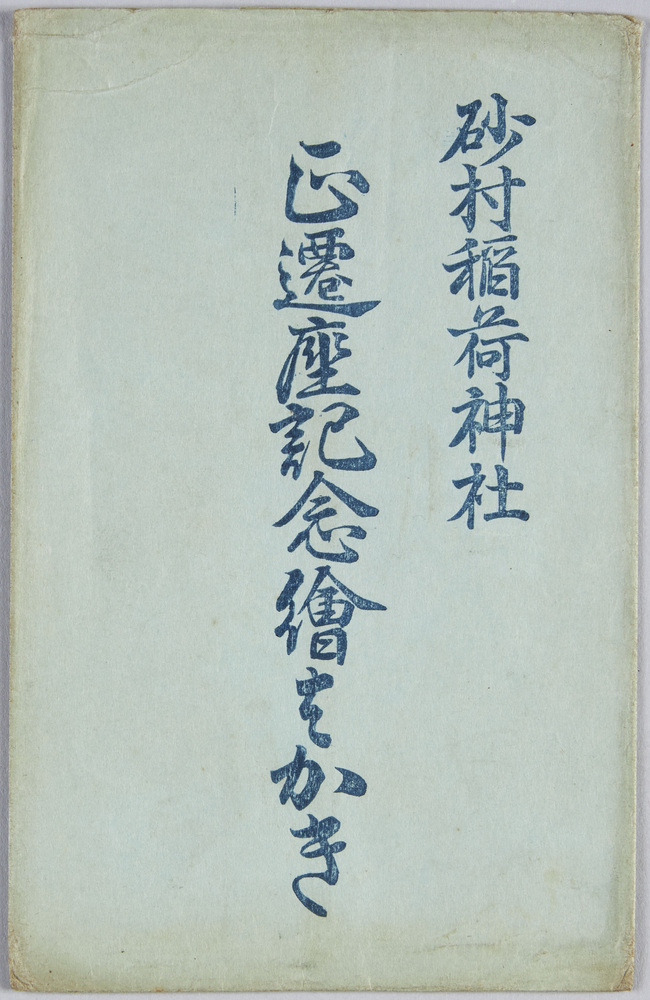 砂村稲荷神社
正遷座記念繪はかき